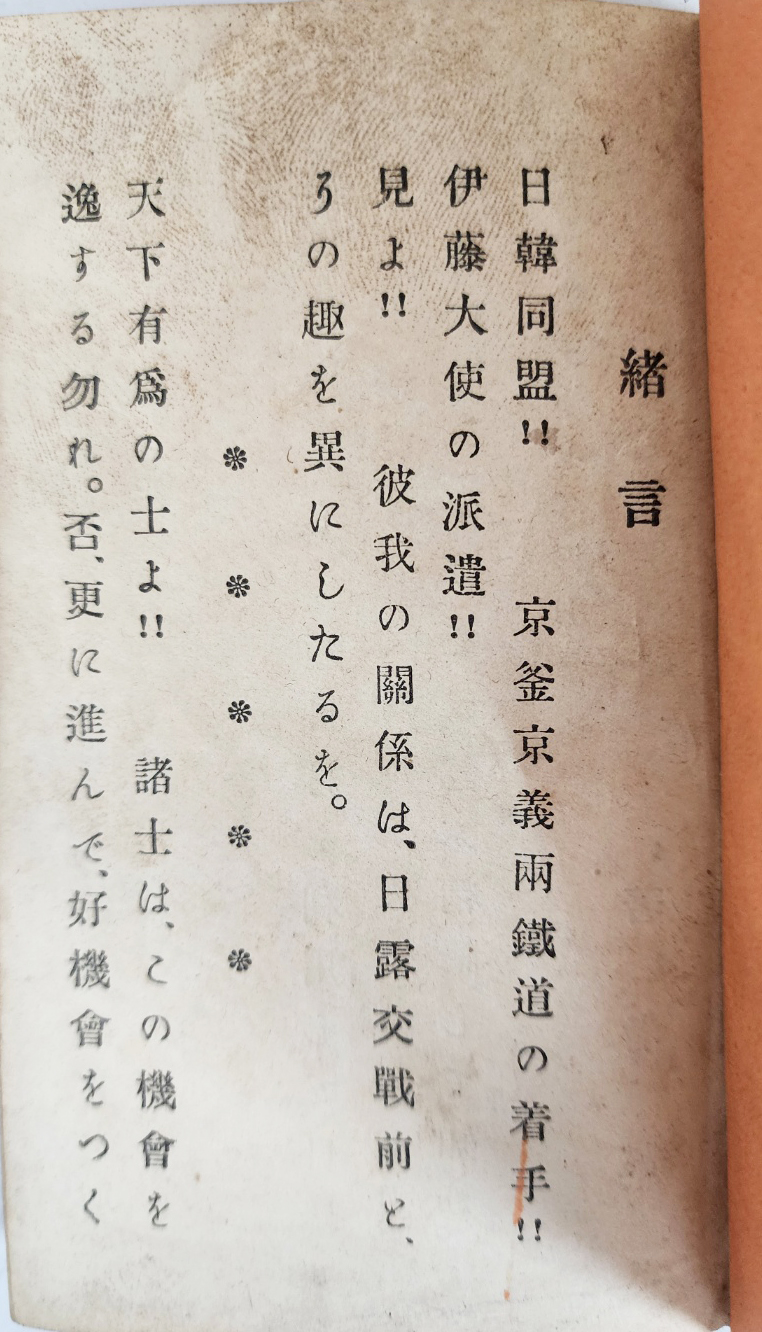 緒言
日韓同盟!! 京釜京義兩鐵道の着手!!
伊藤大使の派遣!!
見よ!! 彼我の關係は、日露交戰前と、
ろの趣を異にしたるを。
＊ ＊ ＊ ＊ ＊
天下有爲の士よ!! 諸士は、この機會を
逸する勿れ。否、更に進んで、好機會をつく